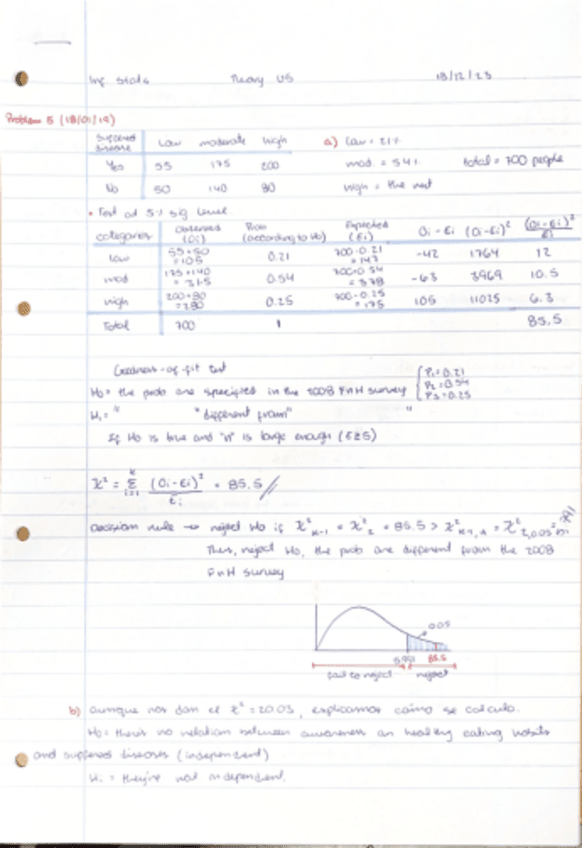 Inf. stats Theory U5 18/12/23
Problem 5 (18/01/19)
Suffered disease Low moderate high a) low = 21%
Yes 55 175 200 mod. = 54% total = 700 people
No 50 140 80 high = the rest
• Test at 5% sig level.
categories Observed (Oi) Prob (according to H0) Expected (Ei) Oi - Ei (Oi-Ei)² (Oi-Ei)²/Ei
low 55+50 = 105 0.21 700·0.21 = 147 -42 1764 12
mod 175+140 = 315 0.54 700·0.54 = 378 -63 3969 10.5
high 200+80 = 280 0.25 700·0.25 = 175 105 11025 6.3
Total 700 1 85.5
Goodness-of-fit test
H0 = the prob are specified in the 2008 FnH survey { P1=0.21 P2=0.54 P3=0.25
H1 = " " different from" "
If H0 is true and "n" is large enough (E≥5)
χ² = Σ (Oi-Ei)²/Ei = 85.5
Decision rule → reject H0 if χ²k-1 = χ²2 = 85.5 > χ²k-1,α = χ²2,0.05
Then, reject H0, the prob are different from the 2008
FnH survey
0.05
5.991 85.5
fail to reject reject
b) aunque nos dan el χ² = 20.03, explicamos cómo se calcula.
H0 = there's no relation between awareness an healthy eating habits
and suffered diseases (independent)
H1 = they're not independent.